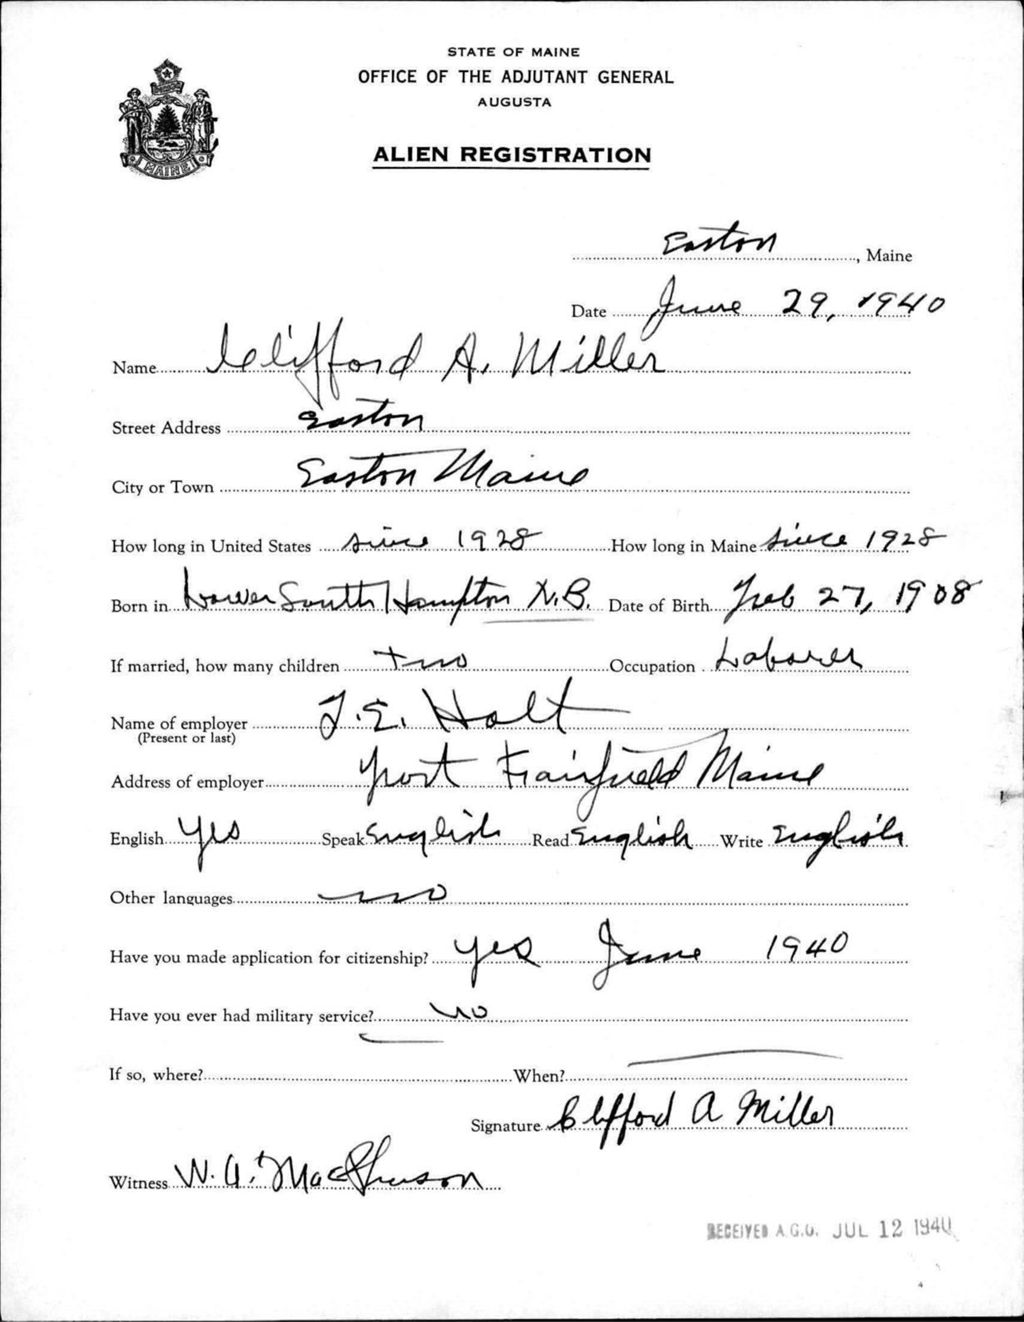 STATE OF MAINE
OFFICE OF THE ADJUTANT GENERAL
AUGUSTA
ALIEN REGISTRATION
MAINE
Easton, Maine
Date June 29, 1940
Name Clifford A. Miller
Street Address Easton
City or Town Easton Maine
How long in United States since 1928 How long in Maine since 1928
Born in Lower South Hampton N.B. Date of Birth Feb 27, 1908
If married, how many children two Occupation Laborer
Name of employer J. E. Holt
(Present or last)
Address of employer Fort Fairfield Maine
English Yes Speak English Read English Write English
Other languages no
Have you made application for citizenship? yes June 1940
Have you ever had military service? no
If so, where? When?
Signature Clifford A Miller
Witness W. A. MacPherson
RECEIVED A.G.O. JUL 12 1940